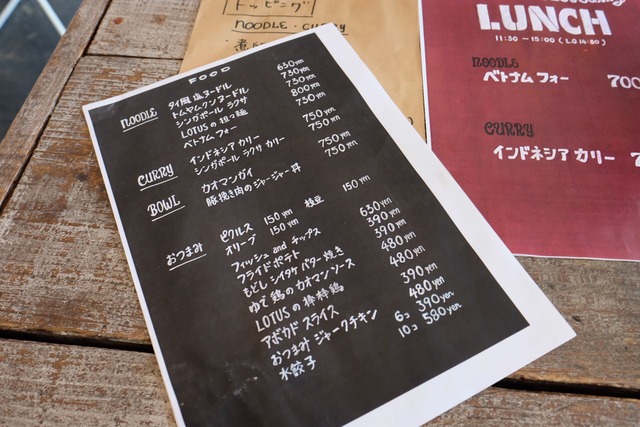 トッピング
NOODLE・CURRY
FOOD
NOODLE タイ風塩ヌードル 630yen
トムヤムクンヌードル 730yen
シンガポール ラクサ 730yen
LOTUSの担々麺 800yen
ベトナムフォー 730yen
CURRY インドネシア カリー 750yen
シンガポール ラクサ カリー 750yen
BOWL カオマンガイ 750yen
豚挽き肉のジャージャー丼 750yen
おつまみ ピクルス 150yen 枝豆 150yen
オリーブ 150yen
フィッシュ and チップス 630yen
フライドポテト 390yen
もどしシイタケバター焼き 390yen
ゆで鶏のカオマンソース 480yen
LOTUSの棒棒鶏 480yen
アボカドスライス 390yen
おつまみ ジャークチキン 480yen
水餃子 6コ 390yen
10コ 580yen
LUNCH
11:30 - 15:00 (L.O 14:30)
NOODLE
ベトナム フォー 700
CURRY
インドネシア カリー